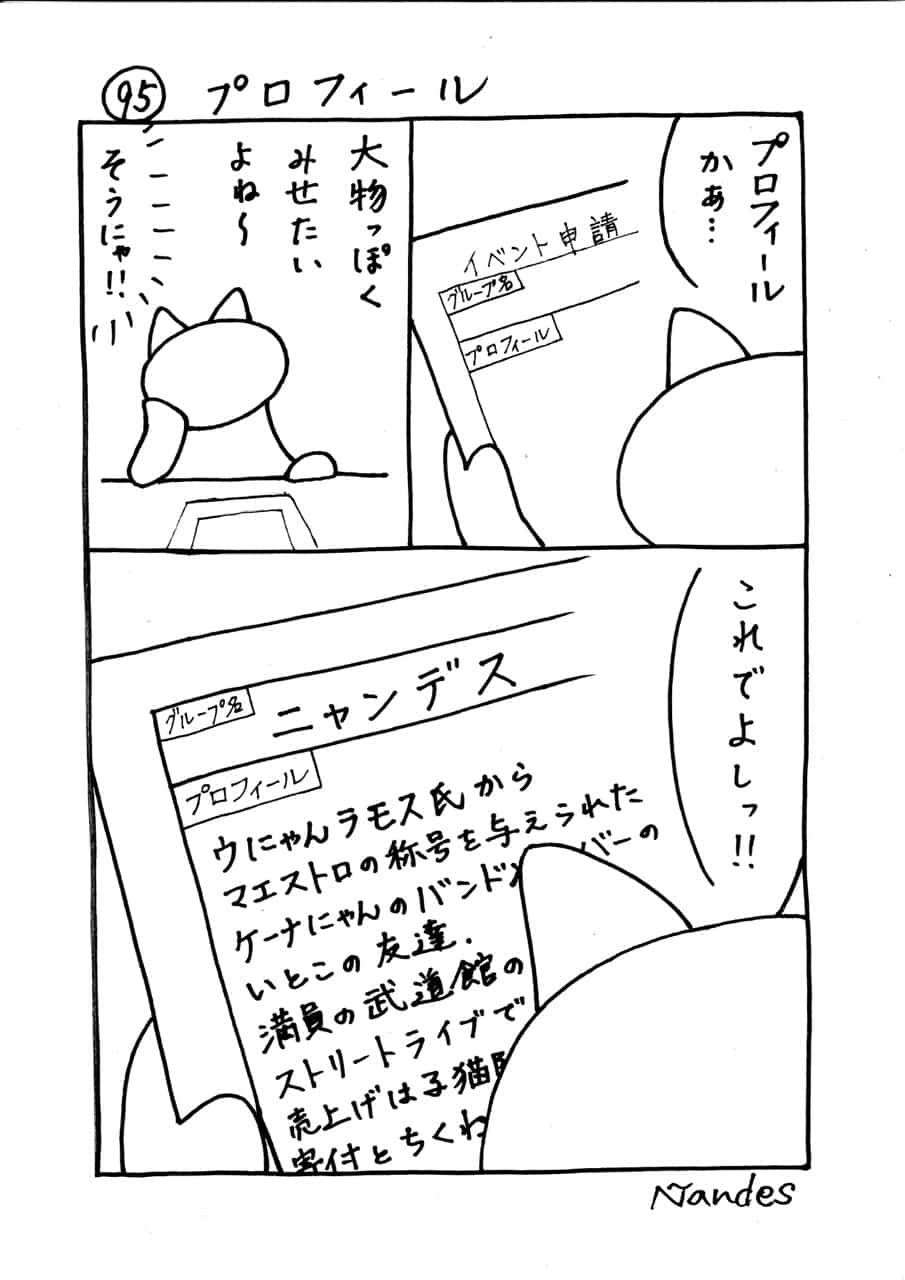 95 プロフィール
プロフィール
かぁ…
イベント申請
グループ名
プロフィール
大物っぽく
みせたい
よね〜
そうにゃ!!
これでよしっ!!
グループ名
ニャンデス
プロフィール
ウにゃんラモス氏から
マエストロの称号を与えられた
ケーナにゃんのバンドメンバーの
いとこの友達.
満員の武道館の
ストリートライブで
売上げは子猫
寄付とちくわ
Nandes